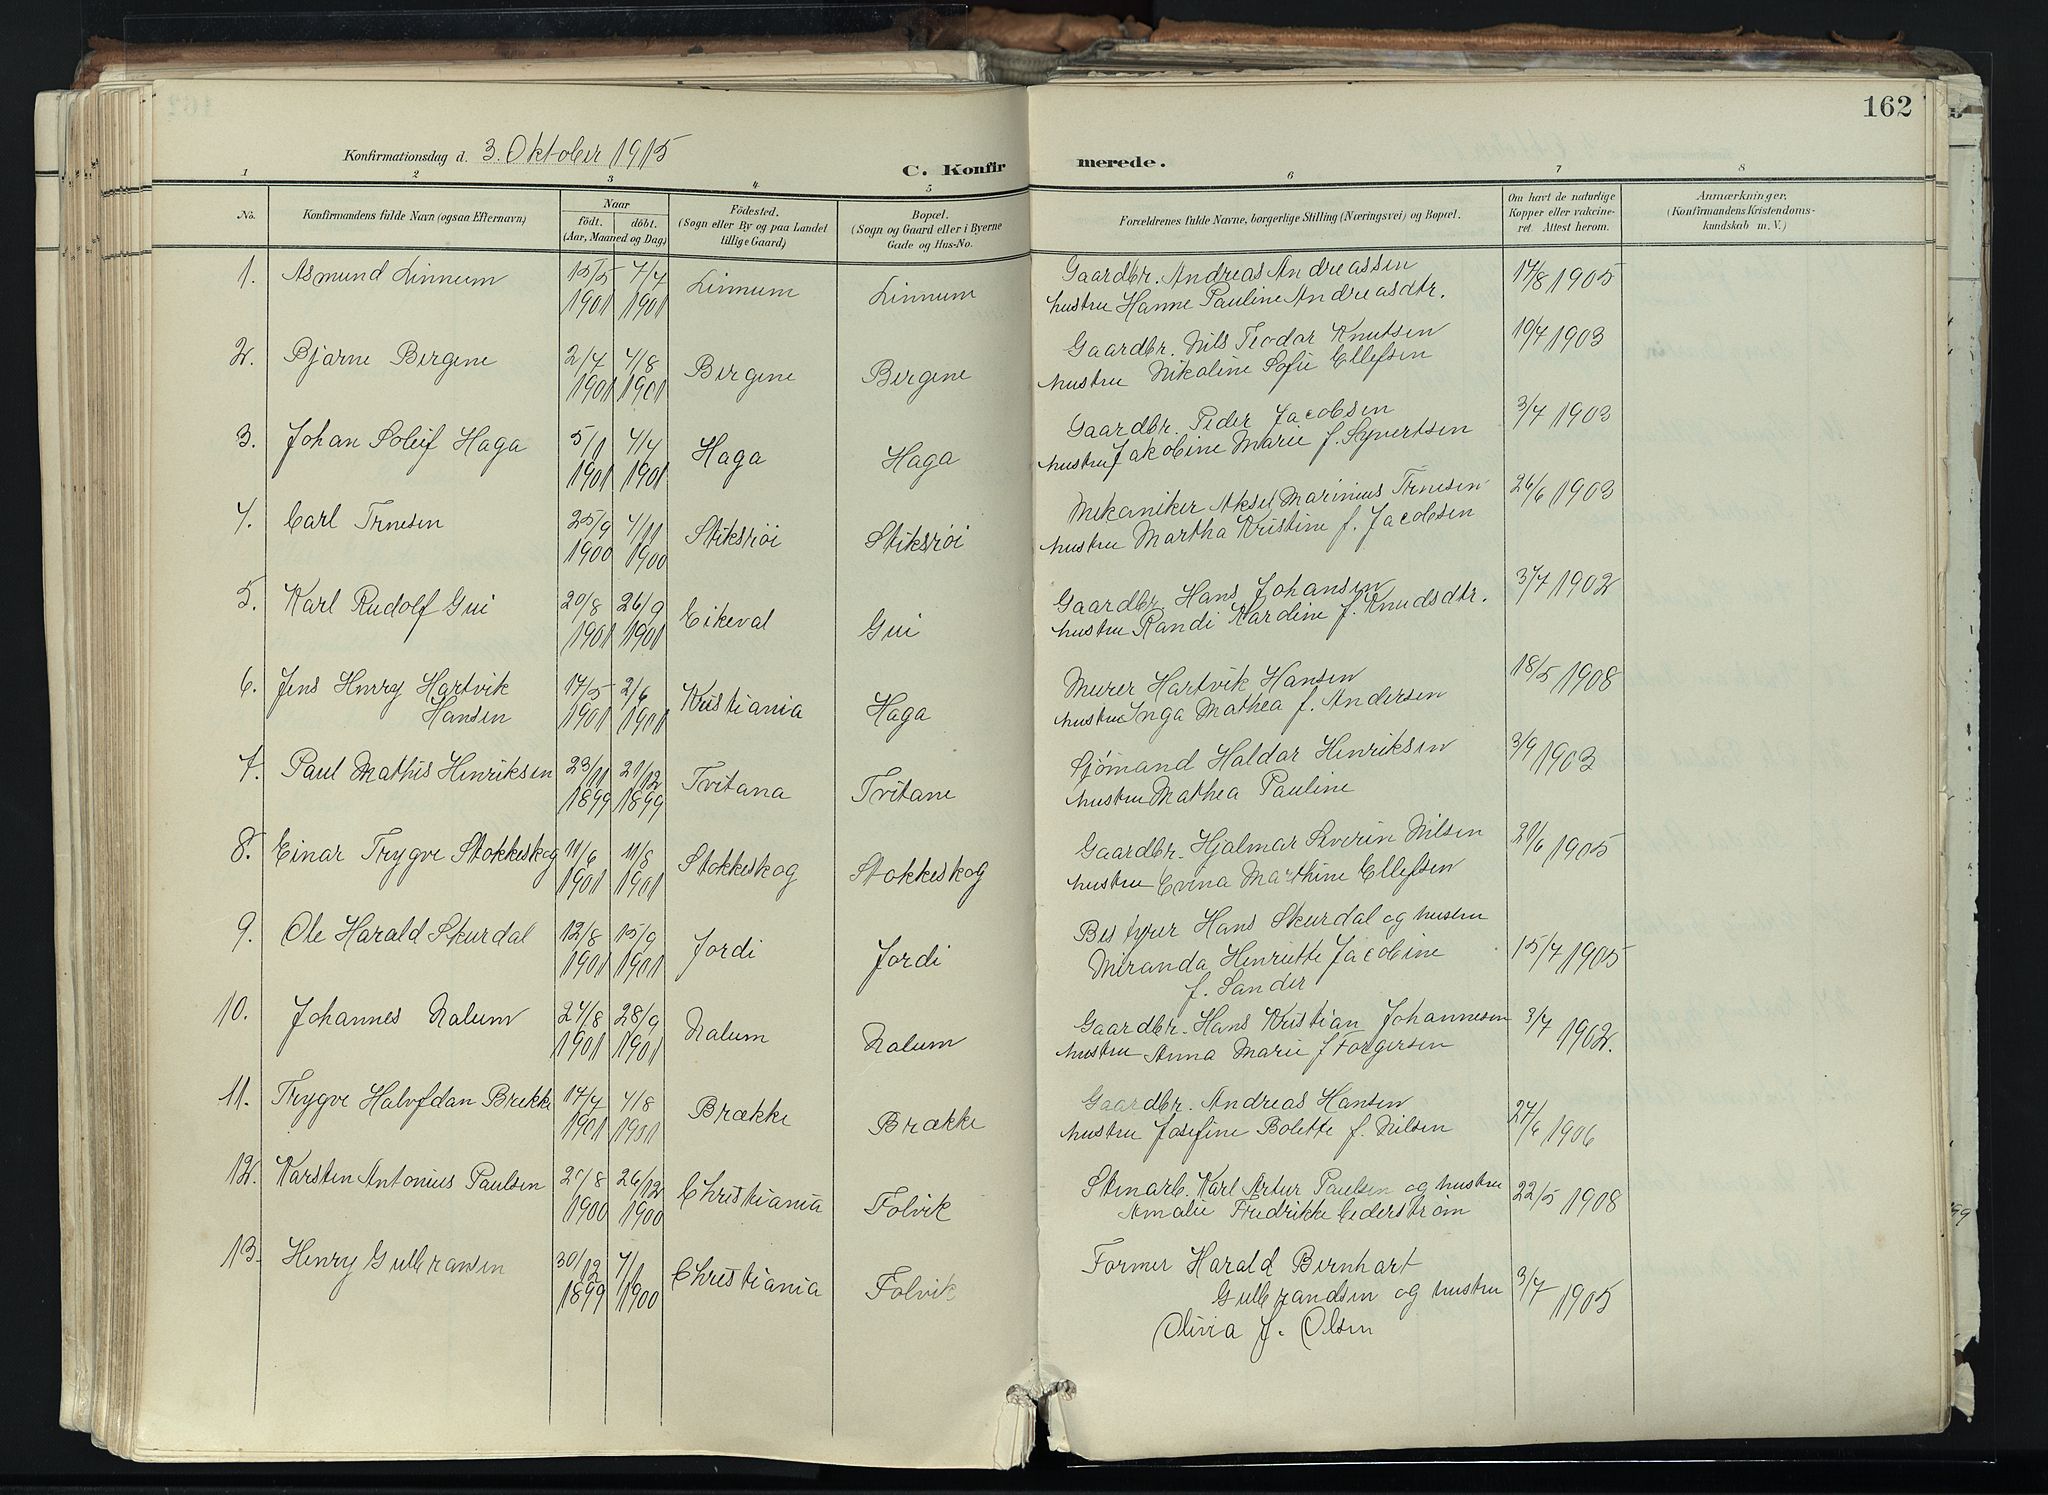 162
Konfirmationsdag d. 3. Oktober 1915
C. Konfirmerede.
1 2 3 4 5 6 7 8
No.
Konfirmandens fulde Navn (ogsaa Efternavn)
Naar
födt. döbt.
(Aar, Maaned og Dag)
Födested.
(Sogn eller By og paa Landet
tillige Gaard)
Bopæl.
(Sogn og Gaard eller i Byerne
Gade og Hus-No.
Forældrenes fulde Navne, borgerlige Stilling (Næringsvei) og Bopæl.
Om havt de naturlige
Kopper eller vakcine-
ret Attest herom.
Anmærkninger.
(Konfirmandens Kristendoms-
kundskab m. V.)
1. Asmund Linnum 15/5 1901 7/7 1901 Linnum Linnum
Gaardbr. Andreas Andreassen
hustru Hanne Pauline Andreasdtr.
17/8 1905
2. Bjarne Bergene 2/7 1901 4/8 1901 Bergene Bergene
Gaardbr. Nils Teodor Knutsen
hustru Nikoline Sofie Ellefsen
10/7 1903
3. Johan Haga 5/1 1901 4/4 1901 Haga Haga
Gaardbr. Peder Jacobsen
hustru Jakobine Marie f. Syvertsen
3/7 1903
4. Carl Trnesen 25/9 1900 4/11 1900 Stiksrøi Stiksrøi
Mekaniker Aksel Marinius Trnesen
hustru Martha Kristine f. Jacobsen
26/6 1903
5. Karl Rudolf Gui 20/8 1901 26/9 1901 Eikeval Gui
Gaardbr. Hans Johansen
hustru Randi Kardine f. Knudsdtr.
3/7 1902
6. Jens Henry Hartvik
Hansen
17/5 1901 2/6 1901 Kristiania Haga
Murer Hartvik Hansen
hustru Inga Mathea f. Andersen
18/5 1908
7. Paul Mathis Henriksen 23/11 1899 21/12 1899 Tvitana Tvitane
Sjømand Haldor Henriksen
hustru Mathea Pauline
3/9 1903
8. Einar Trygve Stokkeskog 11/6 1901 11/8 1901 Stokkeskog Stokkeskog
Gaardbr. Hjalmar Severin Nilsen
hustru Emma Marthine Ellefsen
21/6 1905
9. Ole Harald Skurdal 12/8 1901 15/9 1901 Jordi Jordi
Bestyrer Hans Skurdal og hustru
Miranda Henriette Jacobine
f. Sander
15/7 1905
10. Johannes Nalum 24/8 1901 28/9 1901 Nalum Nalum
Gaardbr. Hans Kristian Johannesen
hustru Anna Marie f Torgersen
3/7 1902.
11. Trygve Halvfdan Brekke 17/7 1901 4/8 1901 Brække Brække
Gaardbr. Andreas Hansen
hustru Josefine Bolette f. Nilsen
27/6 1906
12. Karsten Antonius Paulsen 29/8 1900 26/12 1900 Christiania Folvik
Stenarb. Karl Artur Paulsen og hustru
Amalie Fredrikke Cederstrøm
22/5 1908
13. Henry Gulbransen 30/12 1899 7/1 1900 Christiania Folvik
Former Harald Bernhart
Gulbrandsen og hustru
Olivia f. Olsen
3/7 1905